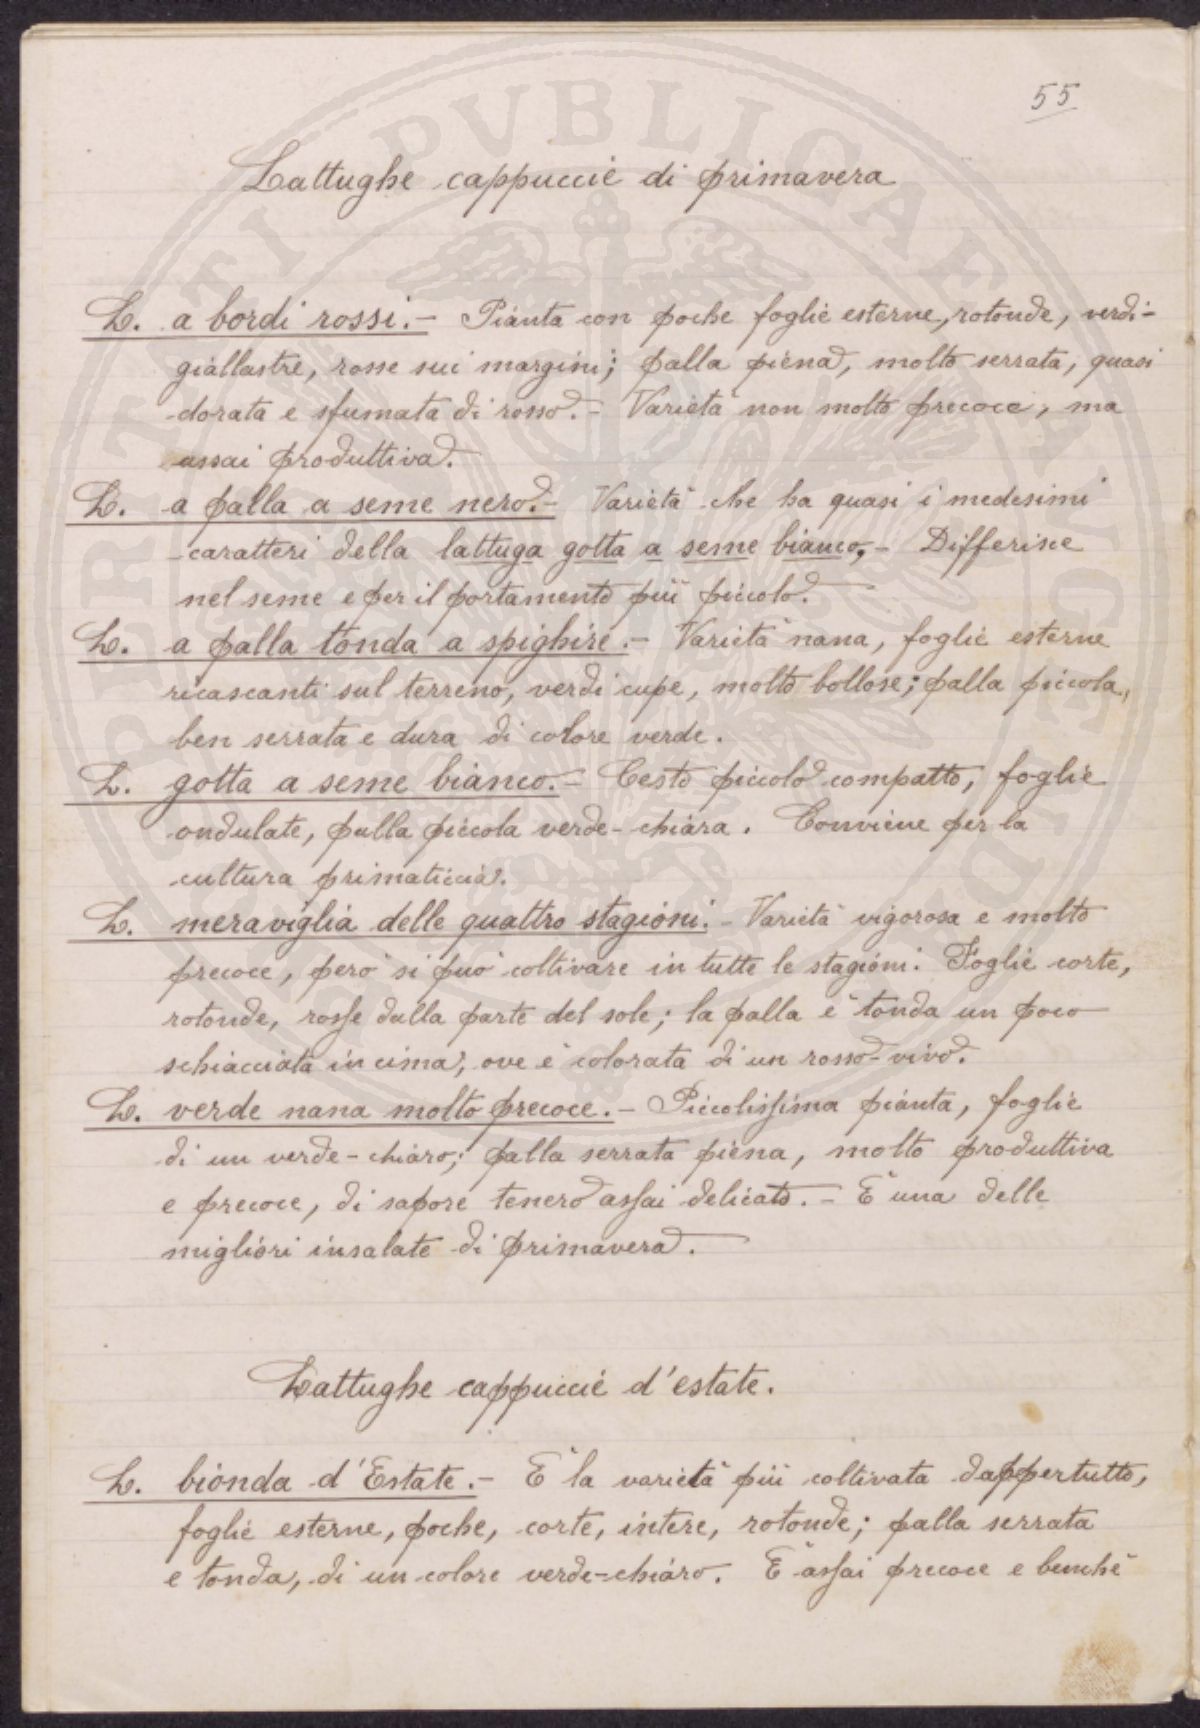 55
Lattughe cappuccie di primavera
L. a bordi rossi. - Pianta con poche foglie esterne, rotonde, verdi-
giallastre, rosse sui margini; palla piena, molto serrata, quasi
dorata e sfumata di rosso. - Varietà non molto precoce, ma
assai produttiva.
L. a palla a seme nero. - Varietà che ha quasi i medesimi
caratteri della lattuga gotta a seme bianco, - Differisce
nel seme e per il portamento più piccolo.
L. a palla tonda a spighire. - Varietà nana, foglie esterne
ricascanti sul terreno, verdi cupe, molto bollose; palla piccola,
ben serrata e dura di colore verde.
L. gotta a seme bianco. - Cesto piccolo compatto, foglie
ondulate, palla piccola verde-chiara. Conviene per la
cultura primaticcia.
L. meraviglia delle quattro stagioni. - Varietà vigorosa e molto
precoce, però si può coltivare in tutte le stagioni. Foglie corte,
rotonde, rosse dalla parte del sole; la palla è tonda un poco
schiacciata in cima, ove è colorata di un rosso-vivo.
L. verde nana molto precoce. - Piccolissima pianta, foglie
di un verde-chiaro; palla serrata piena, molto produttiva
e precoce, di sapore tenero assai delicato. - È una delle
migliori insalate di primavera.
Lattughe cappuccie d'estate.
L. bionda d'Estate. - È la varietà più coltivata dappertutto,
foglie esterne, poche, corte, intere, rotonde; palla serrata
e tonda, di un colore verde-chiaro. È assai precoce e benchè